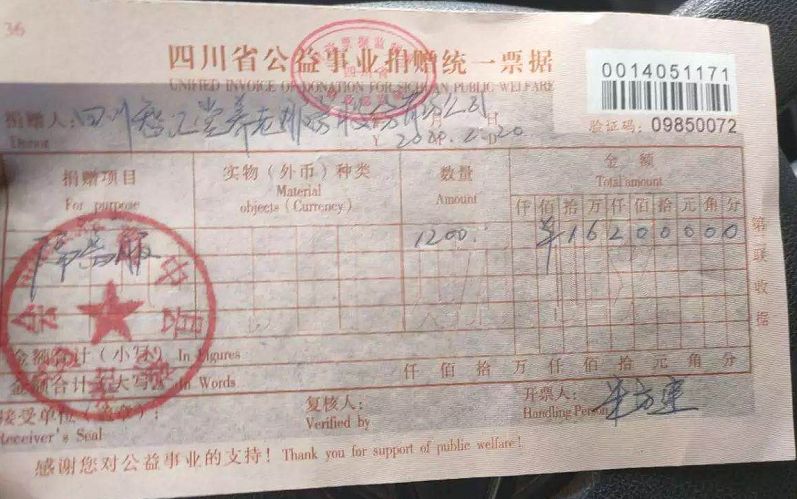 36
四川省公益事业捐赠统一票据
UNIFIED INVOICE OF DONATION FOR SICHUAN PUBLIC WELFARE
0014051171
验证码：09850072
捐赠人：四川 养老服务股份有限公司
Donor
Y 2020.2.20 D
捐赠项目 实物（外币）种类 数量 金额
For purpose Material objects (Currency) Amount Total amount
仟 佰 拾 万 仟 佰 拾 元 角 分
1200. 16200000
第 联 收据
金额合计（小写）In Figures
仟 佰 拾 万 仟 佰 拾 元 角 分
金额合计（大写）In Words
接受单位（盖章）： 复核人： 开票人：
Receiver's Seal Verified by Handling Person
感谢您对公益事业的支持！Thank you for support of public welfare!